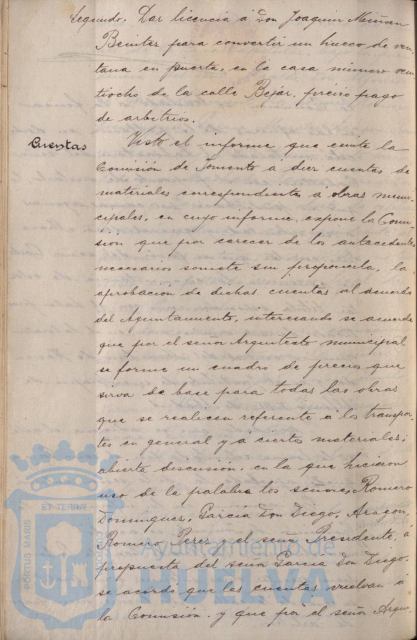 Segundo. Dar licencia á Don Joaquin
Benitez para convertir un hueco de ven-
tana en puerta, en la casa número vein-
tiocho de la calle Bejer, previo pago
de arbitrios.
Cuentas
Visto el informe que emite la
Comisión de Fomento a diez cuentas de
materiales correspondientes a obras muni-
cipales, en cuyo informe, expone la Comi-
sión que por carecer de los antecedentes
necesarios somete sin proponerla, la
aprobación de dichas cuentas al acuerdo
del Ayuntamiento, interesando se acuerde
que por el señor Arquitecto municipal
se forme un cuadro de precios que
sirva de base para todas las obras
que se realicen referente a los transpor-
tes en general y a ciertos materiales;
abierta discusión, en la que hicieron
uso de la palabra los señores Romero
Dominguez, García Don Diego, Aragón,
Romero Perez y el señor Presidente, a
propuesta del señor García Don Diego
se acordó que las cuentas vuelvan a
la Comisión y que por el señor Arqui-
PORTUS MARIS ET TERRÆ CUSTODIA
Ayuntamiento de
HUELVA